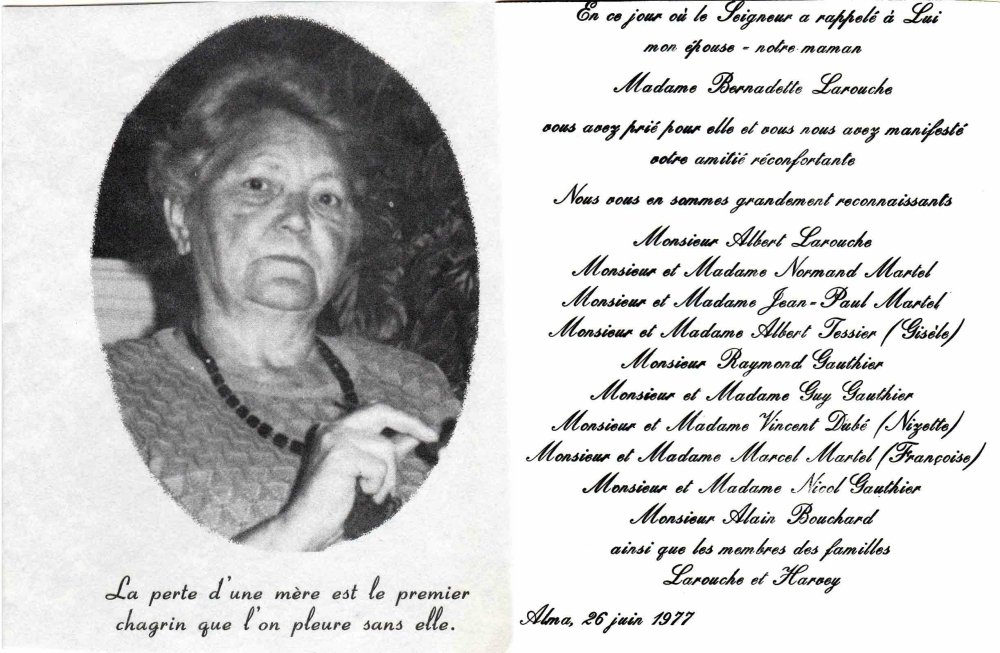 La perte d'une mère est le premier
chagrin que l'on pleure sans elle.
En ce jour où le Seigneur a rappelé à Lui
mon épouse - notre maman
Madame Bernadette Larouche
vous avez prié pour elle et vous nous avez manifesté
votre amitié réconfortante
Nous vous en sommes grandement reconnaissants
Monsieur Albert Larouche
Monsieur et Madame Normand Martel
Monsieur et Madame Jean-Paul Martel
Monsieur et Madame Albert Tessier (Gisèle)
Monsieur Raymond Gauthier
Monsieur et Madame Guy Gauthier
Monsieur et Madame Vincent Dubé (Nizette)
Monsieur et Madame Marcel Martel (Françoise)
Monsieur et Madame Nicol Gauthier
Monsieur Alain Bouchard
ainsi que les membres des familles
Larouche et Harvey
Alma, 26 juin 1977